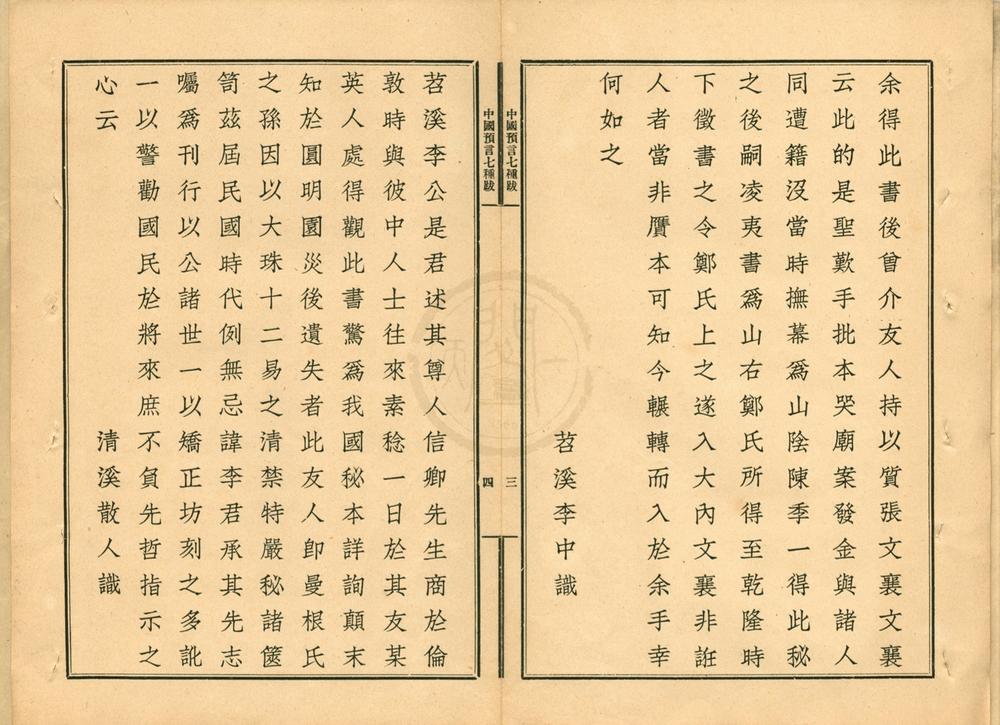 余得此書後曾介友人持以質張文襄文襄
云此的是聖歎手批本哭廟案發金與諸人
同遭籍沒當時撫幕爲山陰陳季一得此秘
之後嗣凌夷書爲山右鄭氏所得至乾隆時
下徵書之令鄭氏上之遂入大內文襄非誑
人者當非贗本可知今輾轉而入於余手幸
何如之
苕溪李中識
中國預言七種跋
三
中國預言七種跋
四
苕溪李公是君述其尊人信卿先生商於倫
敦時與彼中人士往來素稔一日於其友某
英人處得觀此書驚爲我國秘本詳詢顛末
知於圓明園災後遺失者此友人卽曼根氏
之孫因以大珠十二易之清禁特嚴秘諸篋
笥茲屆民國時代例無忌諱李君承其先志
囑爲刊行以公諸世一以矯正坊刻之多訛
一以警勸國民於將來庶不負先哲指示之
心云
清溪散人識